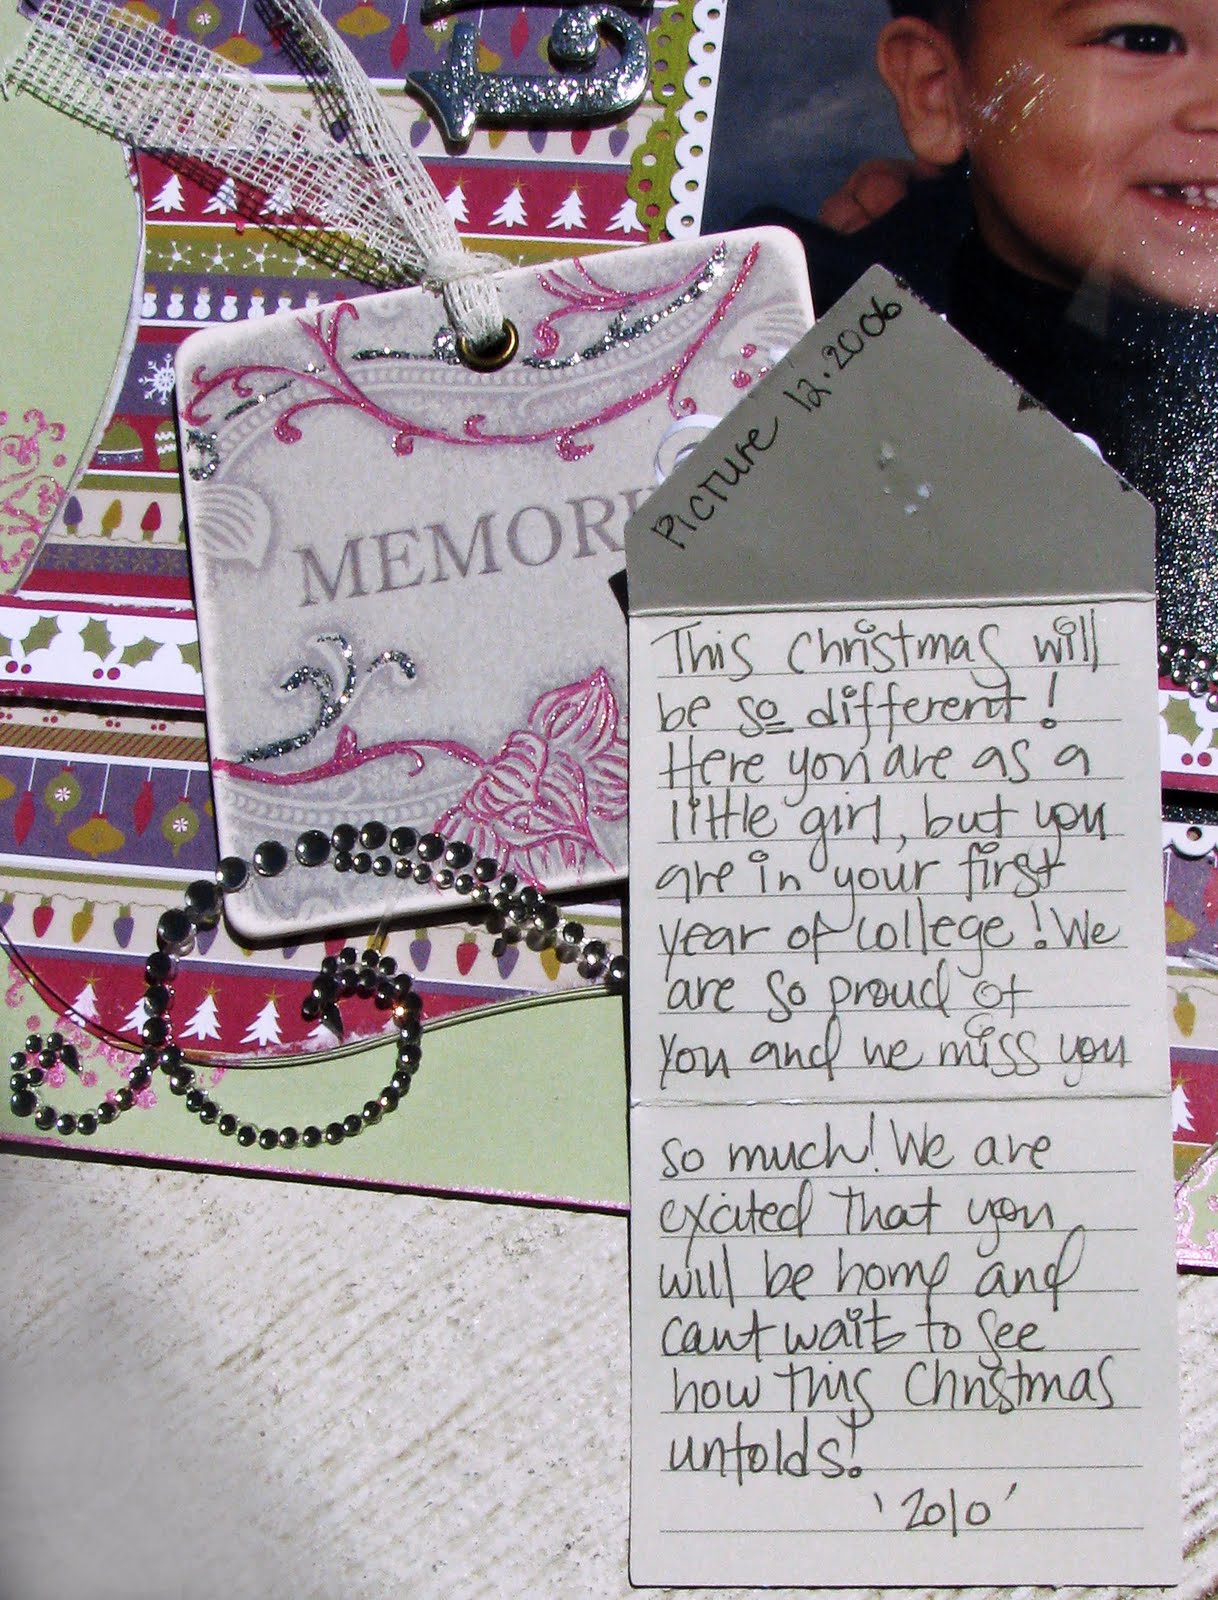 MEMORI
Picture 12.2006
This Christmas will
be so different!
Here you are as a
little girl, but you
are in your first
year of college! We
are so proud of
you and we miss you
so much! We are
excited that you
will be home and
cant wait to see
how this Christmas
unfolds!
'2010'